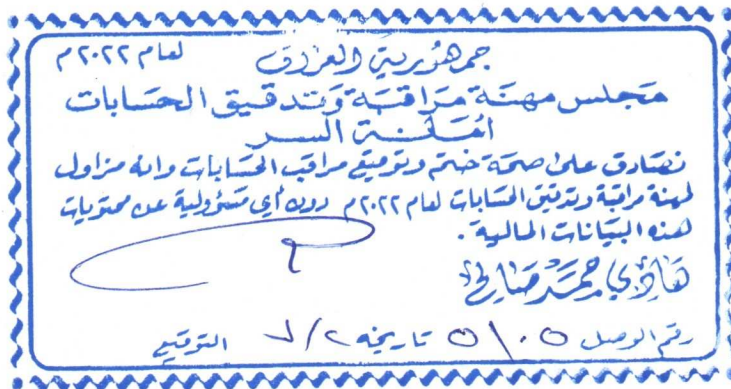 جمهورية العراق لعام ٢٠٢٢م
مجلس مهنة مراقبة وتدقيق الحسابات
أمانة السر
نصادق على صحة ختم وتوقيع مراقب الحسابات وانه مزاول
لمهنة مراقبة وتدقيق الحسابات لعام ٢٠٢٢م دون أي مسؤولية عن محتويات
هذه البيانات المالية .
هادي حمد صالح
رقم الوصل ٥١٠٥ تاريخه ٧/٢ التوقيع